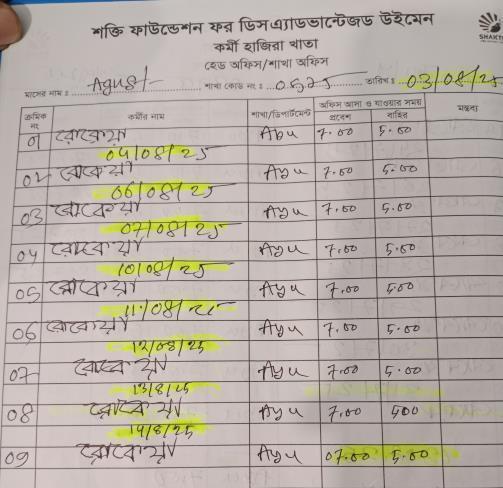 শক্তি ফাউন্ডেশন ফর ডিসএ্যাডভান্টেজড উইমেন
SHAKTI
কর্মী হাজিরা খাতা
হেড অফিস/শাখা অফিস
মাসের নাম : Agust/- শাখা কোড নং : 0525 তারিখ : 03/08/25
ক্রমিক নং কর্মীর নাম শাখা/ডিপার্টমেন্ট অফিস আসা ও যাওয়ার সময় মন্তব্য
প্রবেশ বাহির
01 রোকেয়া Ayu 7.00 5.00
04/08/25
02 রোকেয়া Ayu 7.00 5.00
06/08/25
03 রোকেয়া Ayu 7.00 5.00
07/08/25
04 রোকেয়া Ayu 7.00 5.00
10/08/25
05 রোকেয়া Ayu 7.00 500
11/08/25
06 রোকেয়া Ayu 7.00 5.00
12/08/25
07 রোকেয়া Ayu 7.00 5.00
13/8/25
08 রোকেয়া Ayu 7.00 500
14/8/25
09 রোকেয়া Ayu 07.00 5.00